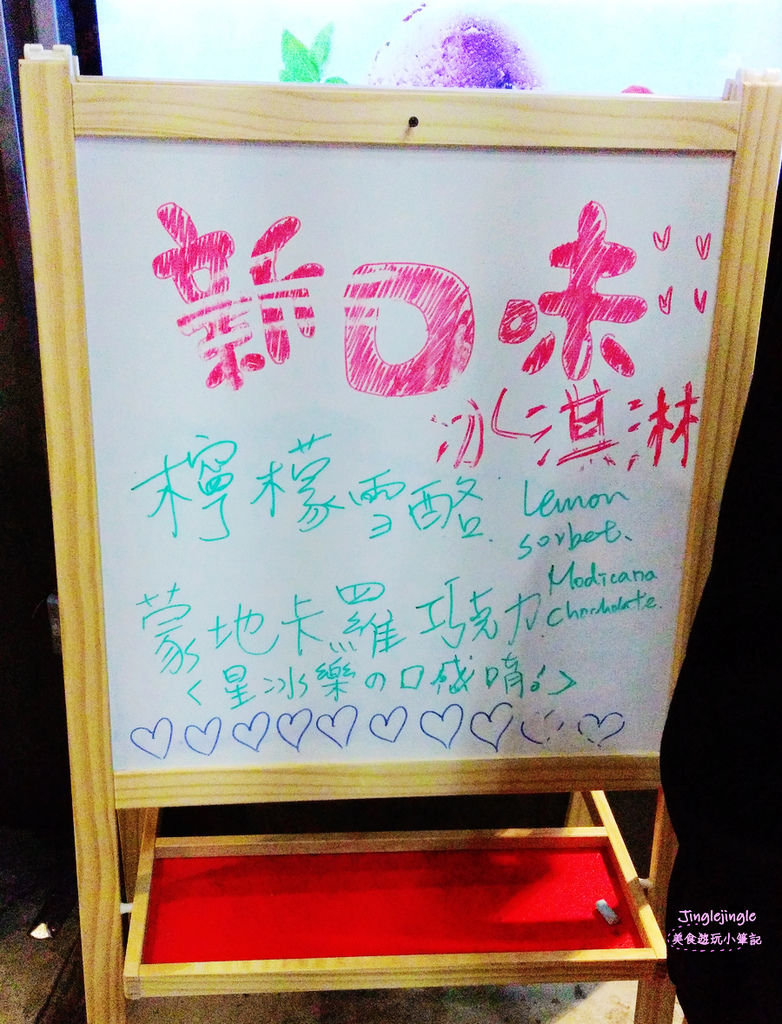 新口味
冰淇淋
檸檬雪酪 Lemon
sorbet.
蒙地卡羅巧克力 Modicana
Chocholate.
<星冰樂の口感唷!>
Jinglejingle
美食遊玩小筆記